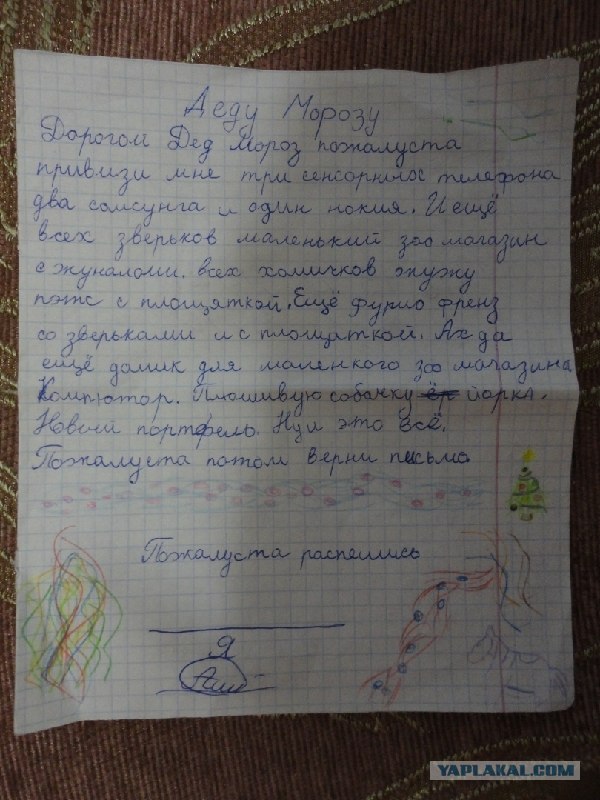 Деду Морозу
Дорогой Дед Мороз пожалуста
привизи мне три сенсорных телефона
два самсунга и один нокия. И ещё
всех зверьков маленький зоо магазин
с жуналоми. всех хомичков жужу
пэтс с площяткой. Ещё фурио френз
со зверьками и с площяткой. Ах да
ещё домик для маленкого зоо магазина
Компютор. Плюшивую собачку йорка.
Новый портфель. Нуи это всё.
Пожалуста потом верни письмо
Пожалуста распешись
Я
YAPLAKAL.COM